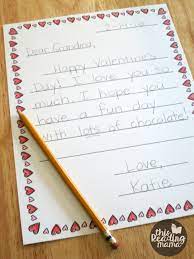 Dear Grandma,
Happy Valentine's
Day! I love you so
much. I hope you
have a fun day
with lots of chocolate!
Love,
Katie
this
Reading
mama